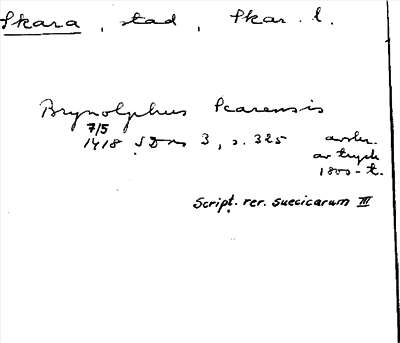 Skara, stad, Skar. l.
Brynolphus Scarensis
7/5
1418 SD ns 3, s. 325 avskr.
av tryck
1800-t.
Script. rer. suecicarum III